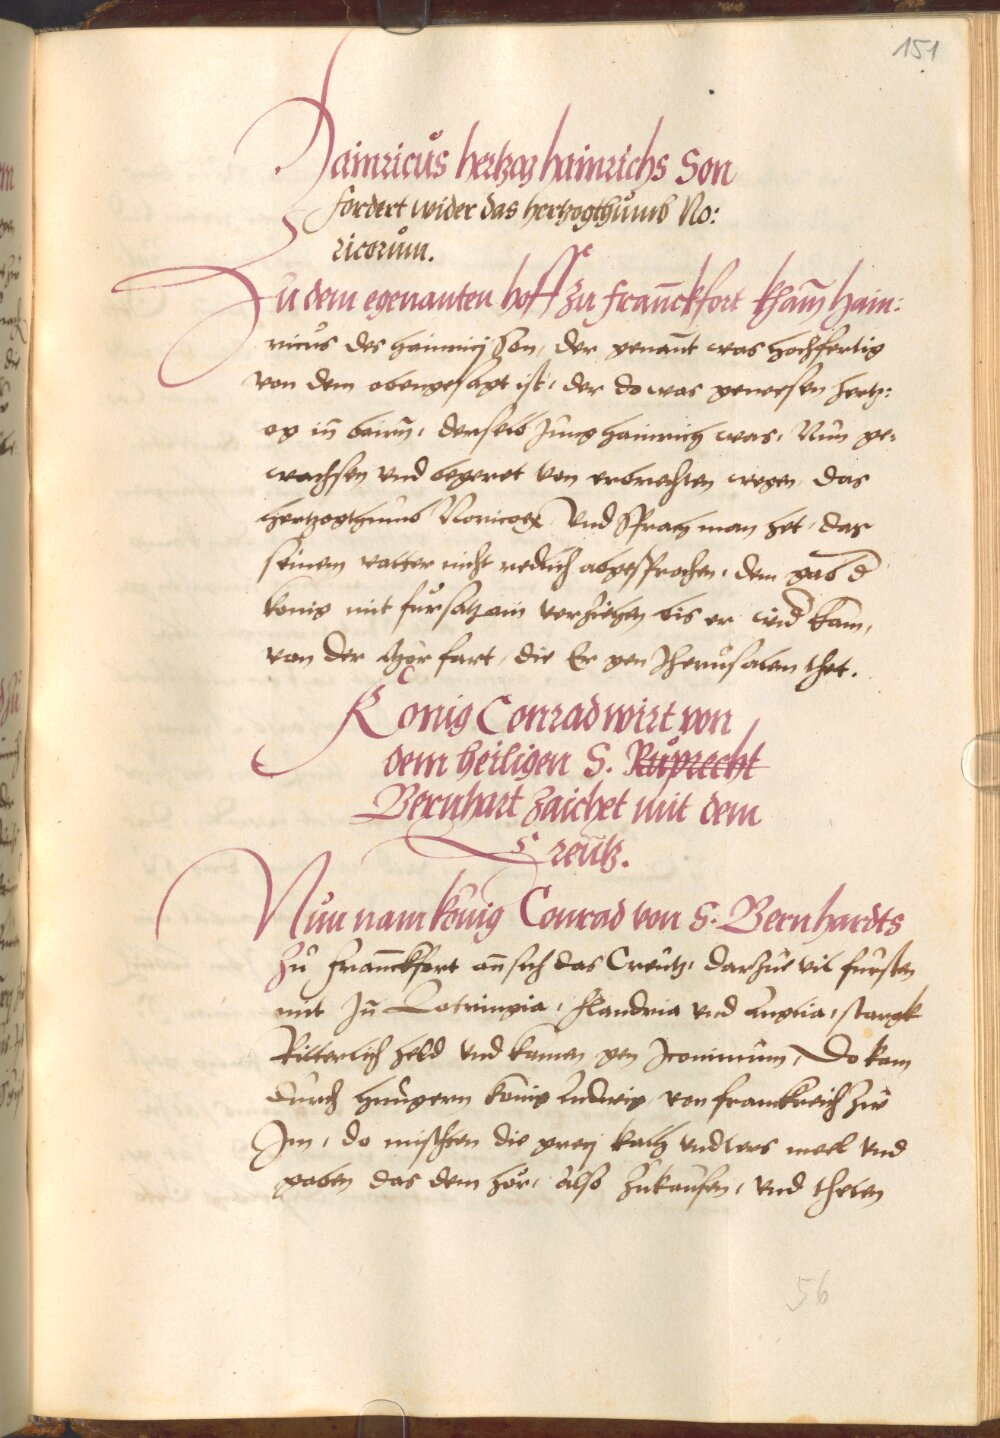 151
Hainricůs hertzog hainrichs Son
fordert wider das hertzogthůmb No:
ricorům.
Zu dem egenanten hoff zu franckfort kham̄ hain:
ricus des hainricj Son, der genan̄t was hochfertig
von dem obengesagt ist, der do was gewesen hertz:
og in̄ bairn̄, derselb Jung hainrich was, Nun ge:
wachsen vnd begeret von erbrechten wegen, das
hertzogthumb Noricoꝝ, vnd sprach man het, das
seinem vatter nicht redlich abgesprochen, dem gab d̄
konig mit fürsatz ain verziehen bis er wid̄ kam,
von der hör fart, die Er gen Jherusalem thet.
König Conrad wirt von
dem heiligen S. Růprecht
Bernhart zaichet mit dem
Creutz.
Nun nam könig Conrad von S. Bernhardts
zu franckfort an sich das Creutz, darzue vil fursten
mit Jn̄ Lotringia, flandria vnd Anglia, starck
Ritterlich held vnd kamen gen Jconinum, Do kam
durch hungern konig Ludwig von franckreich zw
Jm, do mischten die grecj kalch vnders meel vnd
gaben das dem hör, also zukaufen, vnd theten
56